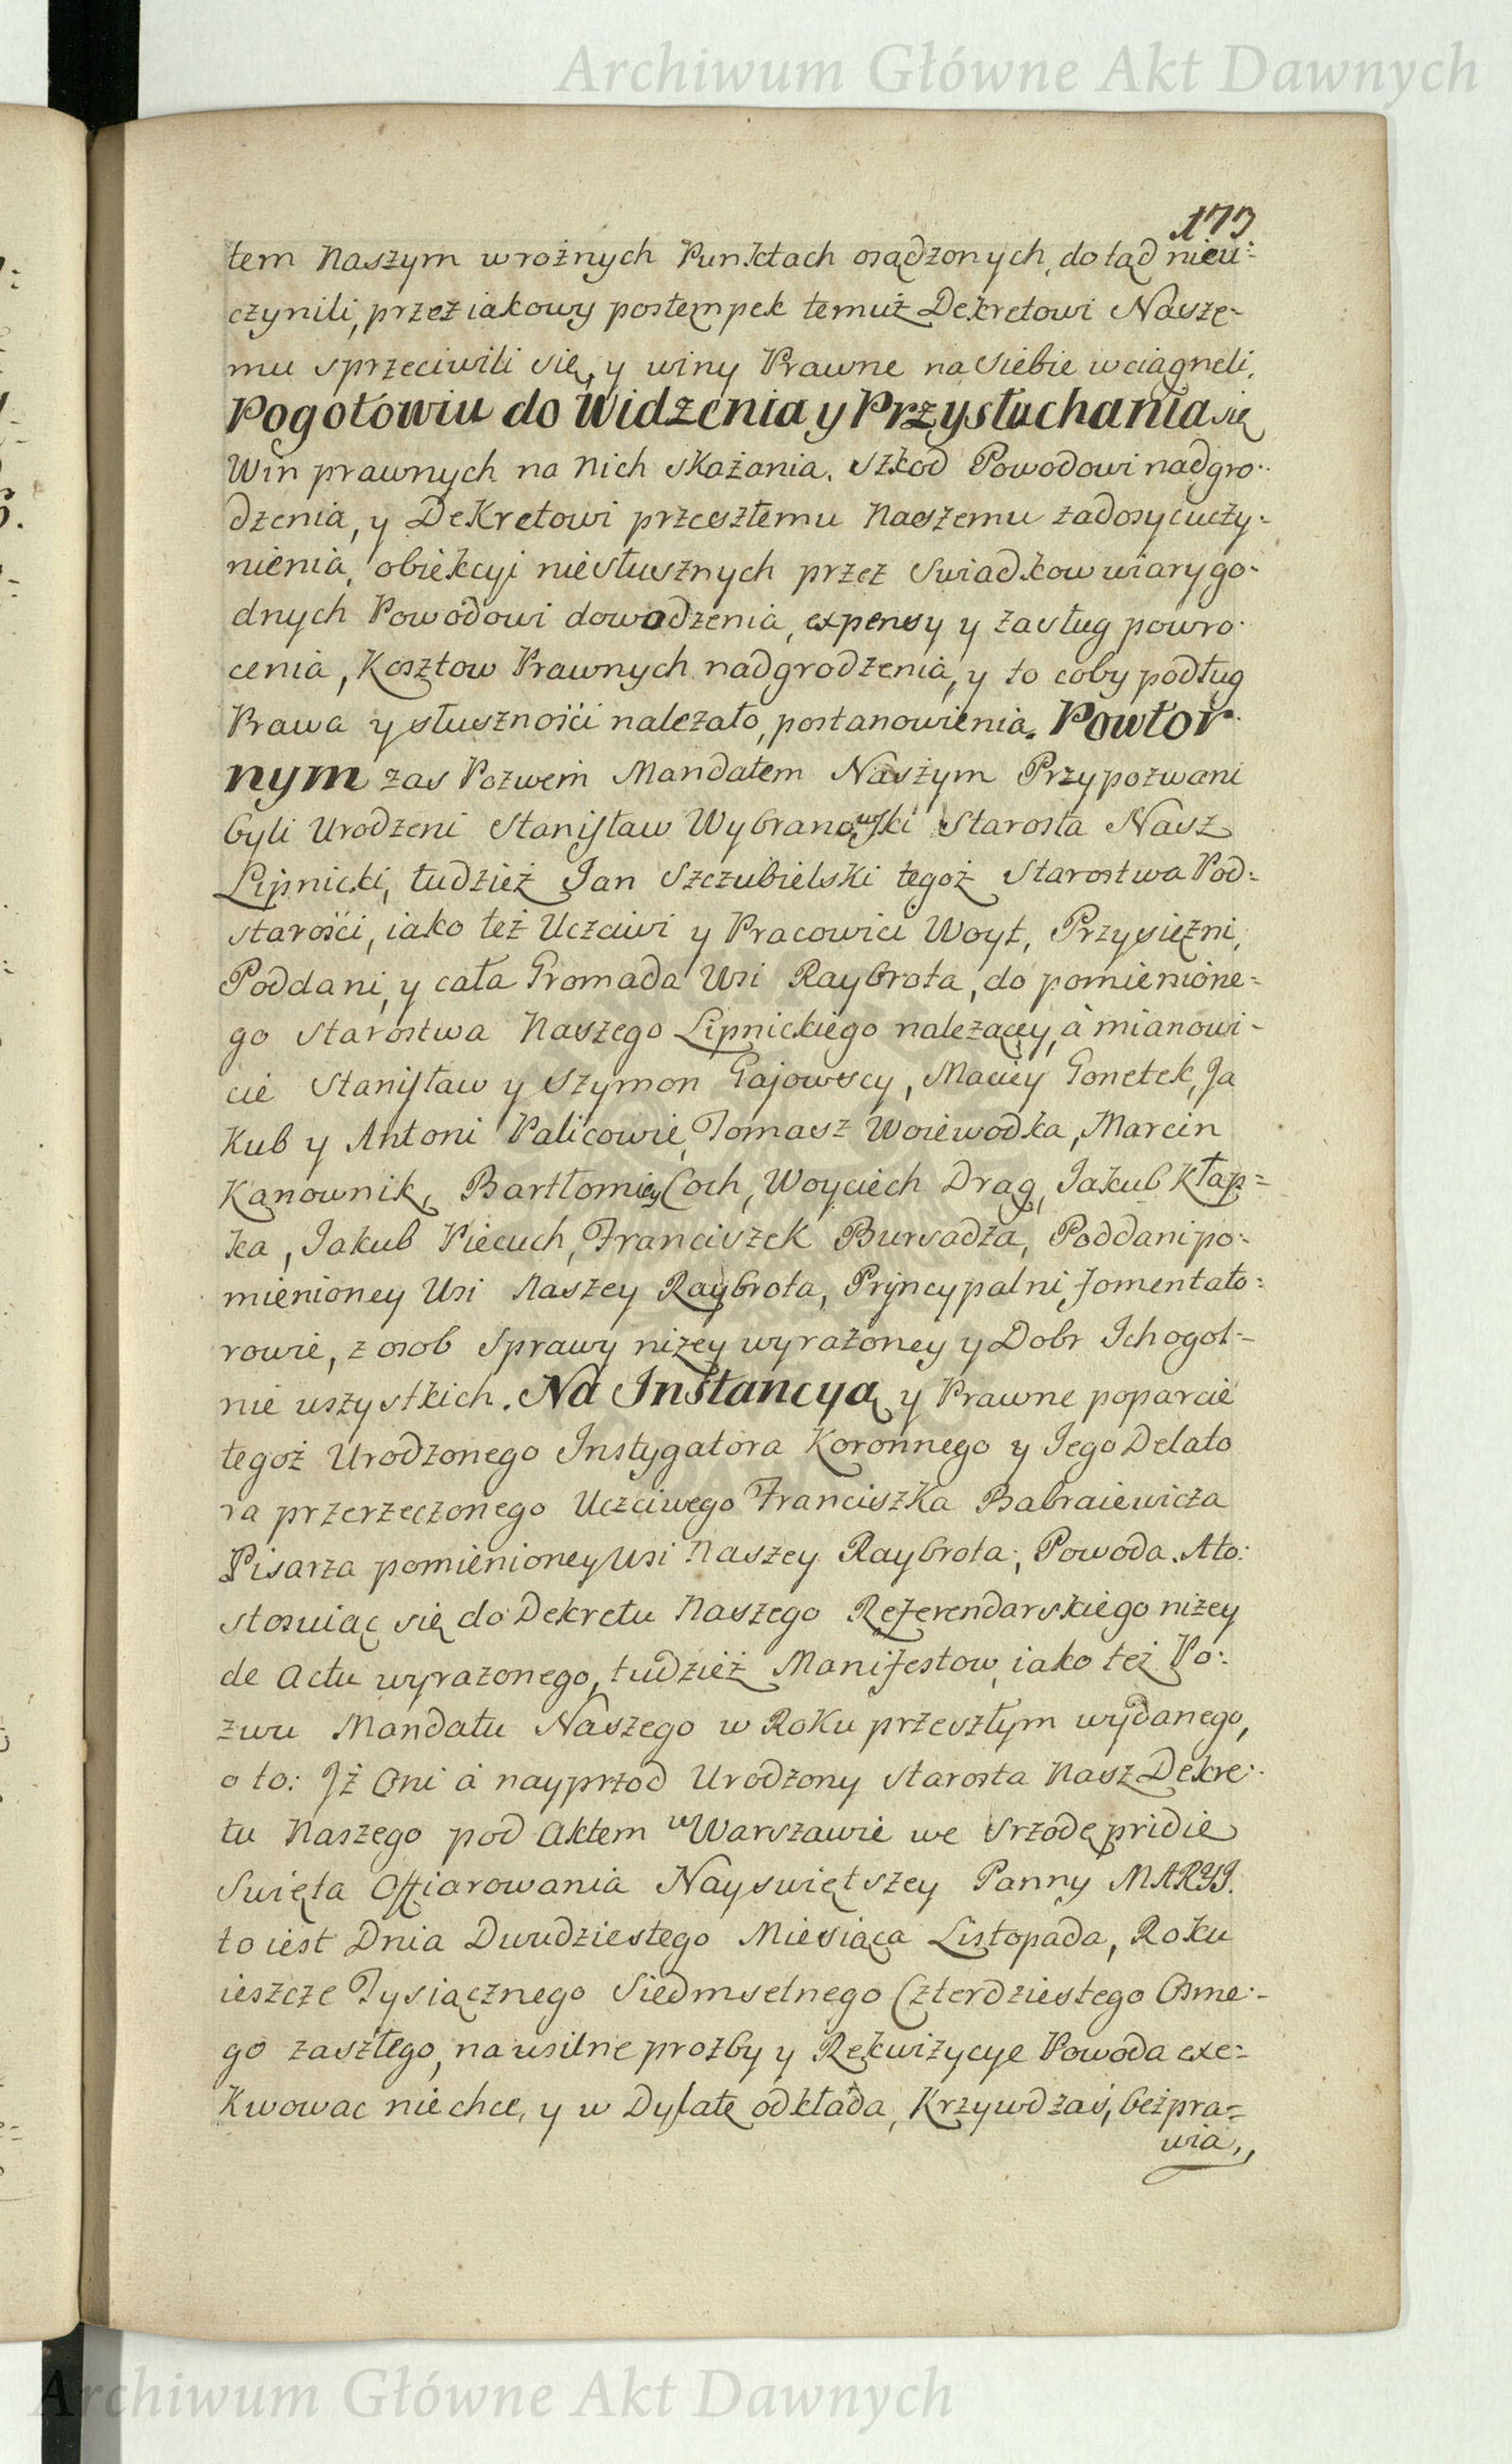 Archiwum Główne Akt Dawnych
173
tem Naszym w rożnych Punktach osądzonych, dotąd nieu:
czynili, przez iakowy postempek temuż Dekretowi Nasze-
mu sprzeciwili się, y winy Prawne na siebie wciągneli.
Pogotowiu do Widzenia y Przysłuchania się
Win prawnych na nich skazania. Szkod Powodowi nadgro:
dzenia, y Dekretowi przeszłemu Naszemu zadosyc uczy-
nienia, obiekcyi niesłusznych przez Swiadkow wiary go-
dnych Powodowi dowodzenia, expensy y zasług powro:
cenia, Kosztow Prawnych nadgrodzenia, y to coby podług
Prawa y słuszności należało, postanowienia. Powtor
nym zas Pozwem Mandatem Naszym Przypozwani
byli Urodzeni Stanisław Wybranowski Starosta Nasz
Lipnicki, tudzież Jan Szczubielski tegoż Starostwa Pod=
starości, iako też Uczciwi y Pracowici Woyt, Przysiężni,
Poddani, y cała Gromada Wsi Raybrota, do pomienione=
go Starostwa Naszego Lipnickiego należącey, à mianowi-
cie Stanisław y Szymon Gajowscy, Maciey Gonetek, Ja
kub y Antoni Palicowie, Tomasz Woiewodka, Marcin
Kanownik, Bartłomiey Coch, Woyciech Drąg, Jakub Kłap=
ka, Jakub Piecuch, Franciszek Bursadza, Poddani po-
mienioney Wsi Naszey Raybrota, Pryncypalni fomentato=
rowie, z osob Sprawy niżey wyrażoney y Dobr Ich ogol=
nie wszystkich. Na Instancyą y Prawne poparcie
tegoż Urodzonego Instygatora Koronnego y Jego Delato
ra przerzeczonego Uczciwego Franciszka Babraiewicza
Pisarza pomienioney Wsi Naszey Raybrota, Powoda. A to:
stosuiąc się do Dekretu Naszego Referendarskiego niżey
de Actu wyrazonego, tudzież Manifestow, iako też Po:
zwu Mandatu Naszego w Roku przeszłym wydanego,
o to: Iż Oni à nayprzod Urodzony Starosta Nasz Dekre:
tu Naszego pod Aktem w Warszawie we Srzodę pridie
Swięta Offiarowania Nayswiętszey Panny MARYI.
to iest Dnia Dwudziestego Miesiąca Listopada, Roku
ieszcze Tysiącznego Siedmsetnego Czterdziestego Osme:
go zaszłego, na usilne prozby y Rekwizycye Powoda exe=
kwowac nie chce, y w Dylatę odkłada, Krzywd zaś, bezpra=
wia,,
Archiwum Główne Akt Dawnych